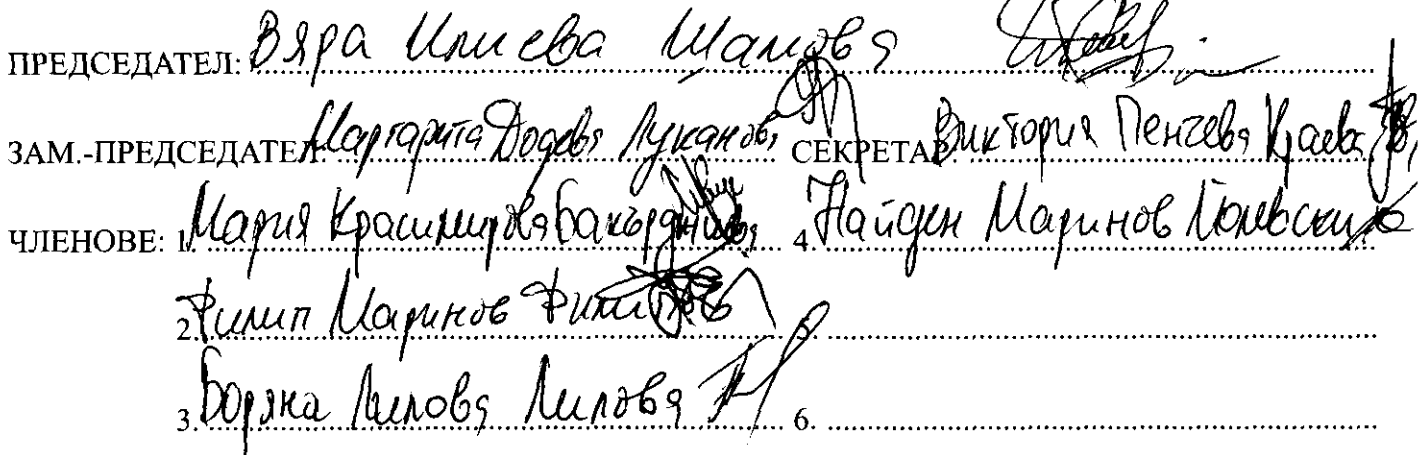 ПРЕДСЕДАТЕЛ: Вяра Илиева
ЗАМ.-ПРЕДСЕДАТЕЛ: Маргарита Додева Луканова СЕКРЕТАР: Виктория Пенчева Краева
ЧЛЕНОВЕ: 1. Мария Красимирова Бакърджиева 4. Найден Маринов
2. Филип Маринов Филипов 5.
3. Боряна Лилова Лилова 6.